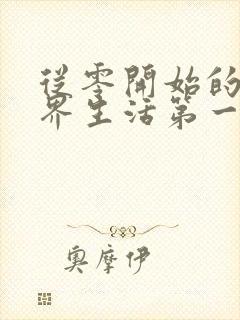 從零開始的
界生活第一
奧摩伊